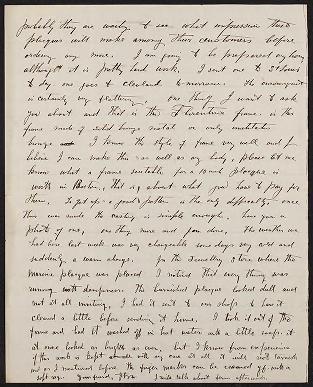 probably they are waiting to see what impression these
plaques will make among their customers before
ordering any more. I am going to be prepared any how
although it is pretty hard work. I sent one to St Louis
to day one goes to Cleveland to-morrow. The encouragement
is certainly very flattering. one thing I want to ask
you about and that is the Florentine frame. is the
frame made of solid bronze metal or only imitation
bronze I know the style of frame very well and
believe I can make this as well as any body, please let me
know what a frame suitable for a plaque is
worth in Boston, that is about what you have to pay for
them. To get up a good pattern is the only difficulty. once
this one made the casting is simple enough. have you a
photo of one, one thing more and I am done. The weather we
had here last week was very changeable some days very cold and
suddenly a warm change. In the Jewelry store where the
plaque was placed I noticed that every thing was
with dampness. The burnished plaque looked dull and
not at all inviting. I had it sent to our shop to have it
cleaned a little before sending it home. I took it out of the
frame and had it washed off in hot water and a little soap. it
at once looked as bright as ever. but I know from experience
if this work is kept with any one at all it will not tarnish
the finger marks can be removed with a
soft rag.